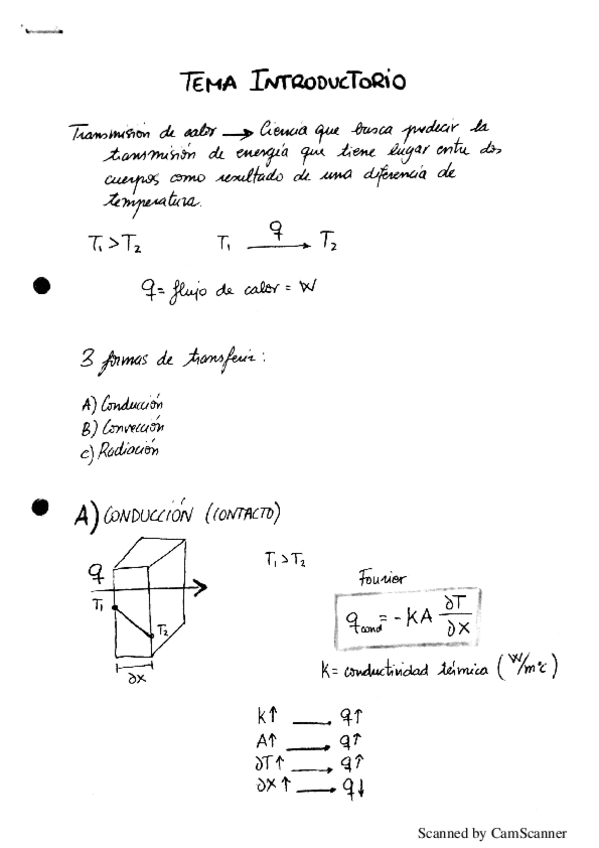 TEMA INTRODUCTORIO
Transmisión de calor → Ciencia que busca predecir la
transmisión de energía que tiene lugar entre dos
cuerpos como resultado de una diferencia de
temperatura.
T₁ > T₂ T₁ q → T₂
q = flujo de calor = W
3 formas de transferir:
A) Conducción
B) Convección
C) Radiación
A) CONDUCCIÓN (CONTACTO)
T₁ > T₂
Fourier
q
T₁
T₂
∂x
q_cond = -KA ∂T/∂X
K = conductividad térmica (W/m°C)
K↑ → q↑
A↑ → q↑
∂T↑ → q↑
∂X↑ → q↓
Scanned by CamScanner